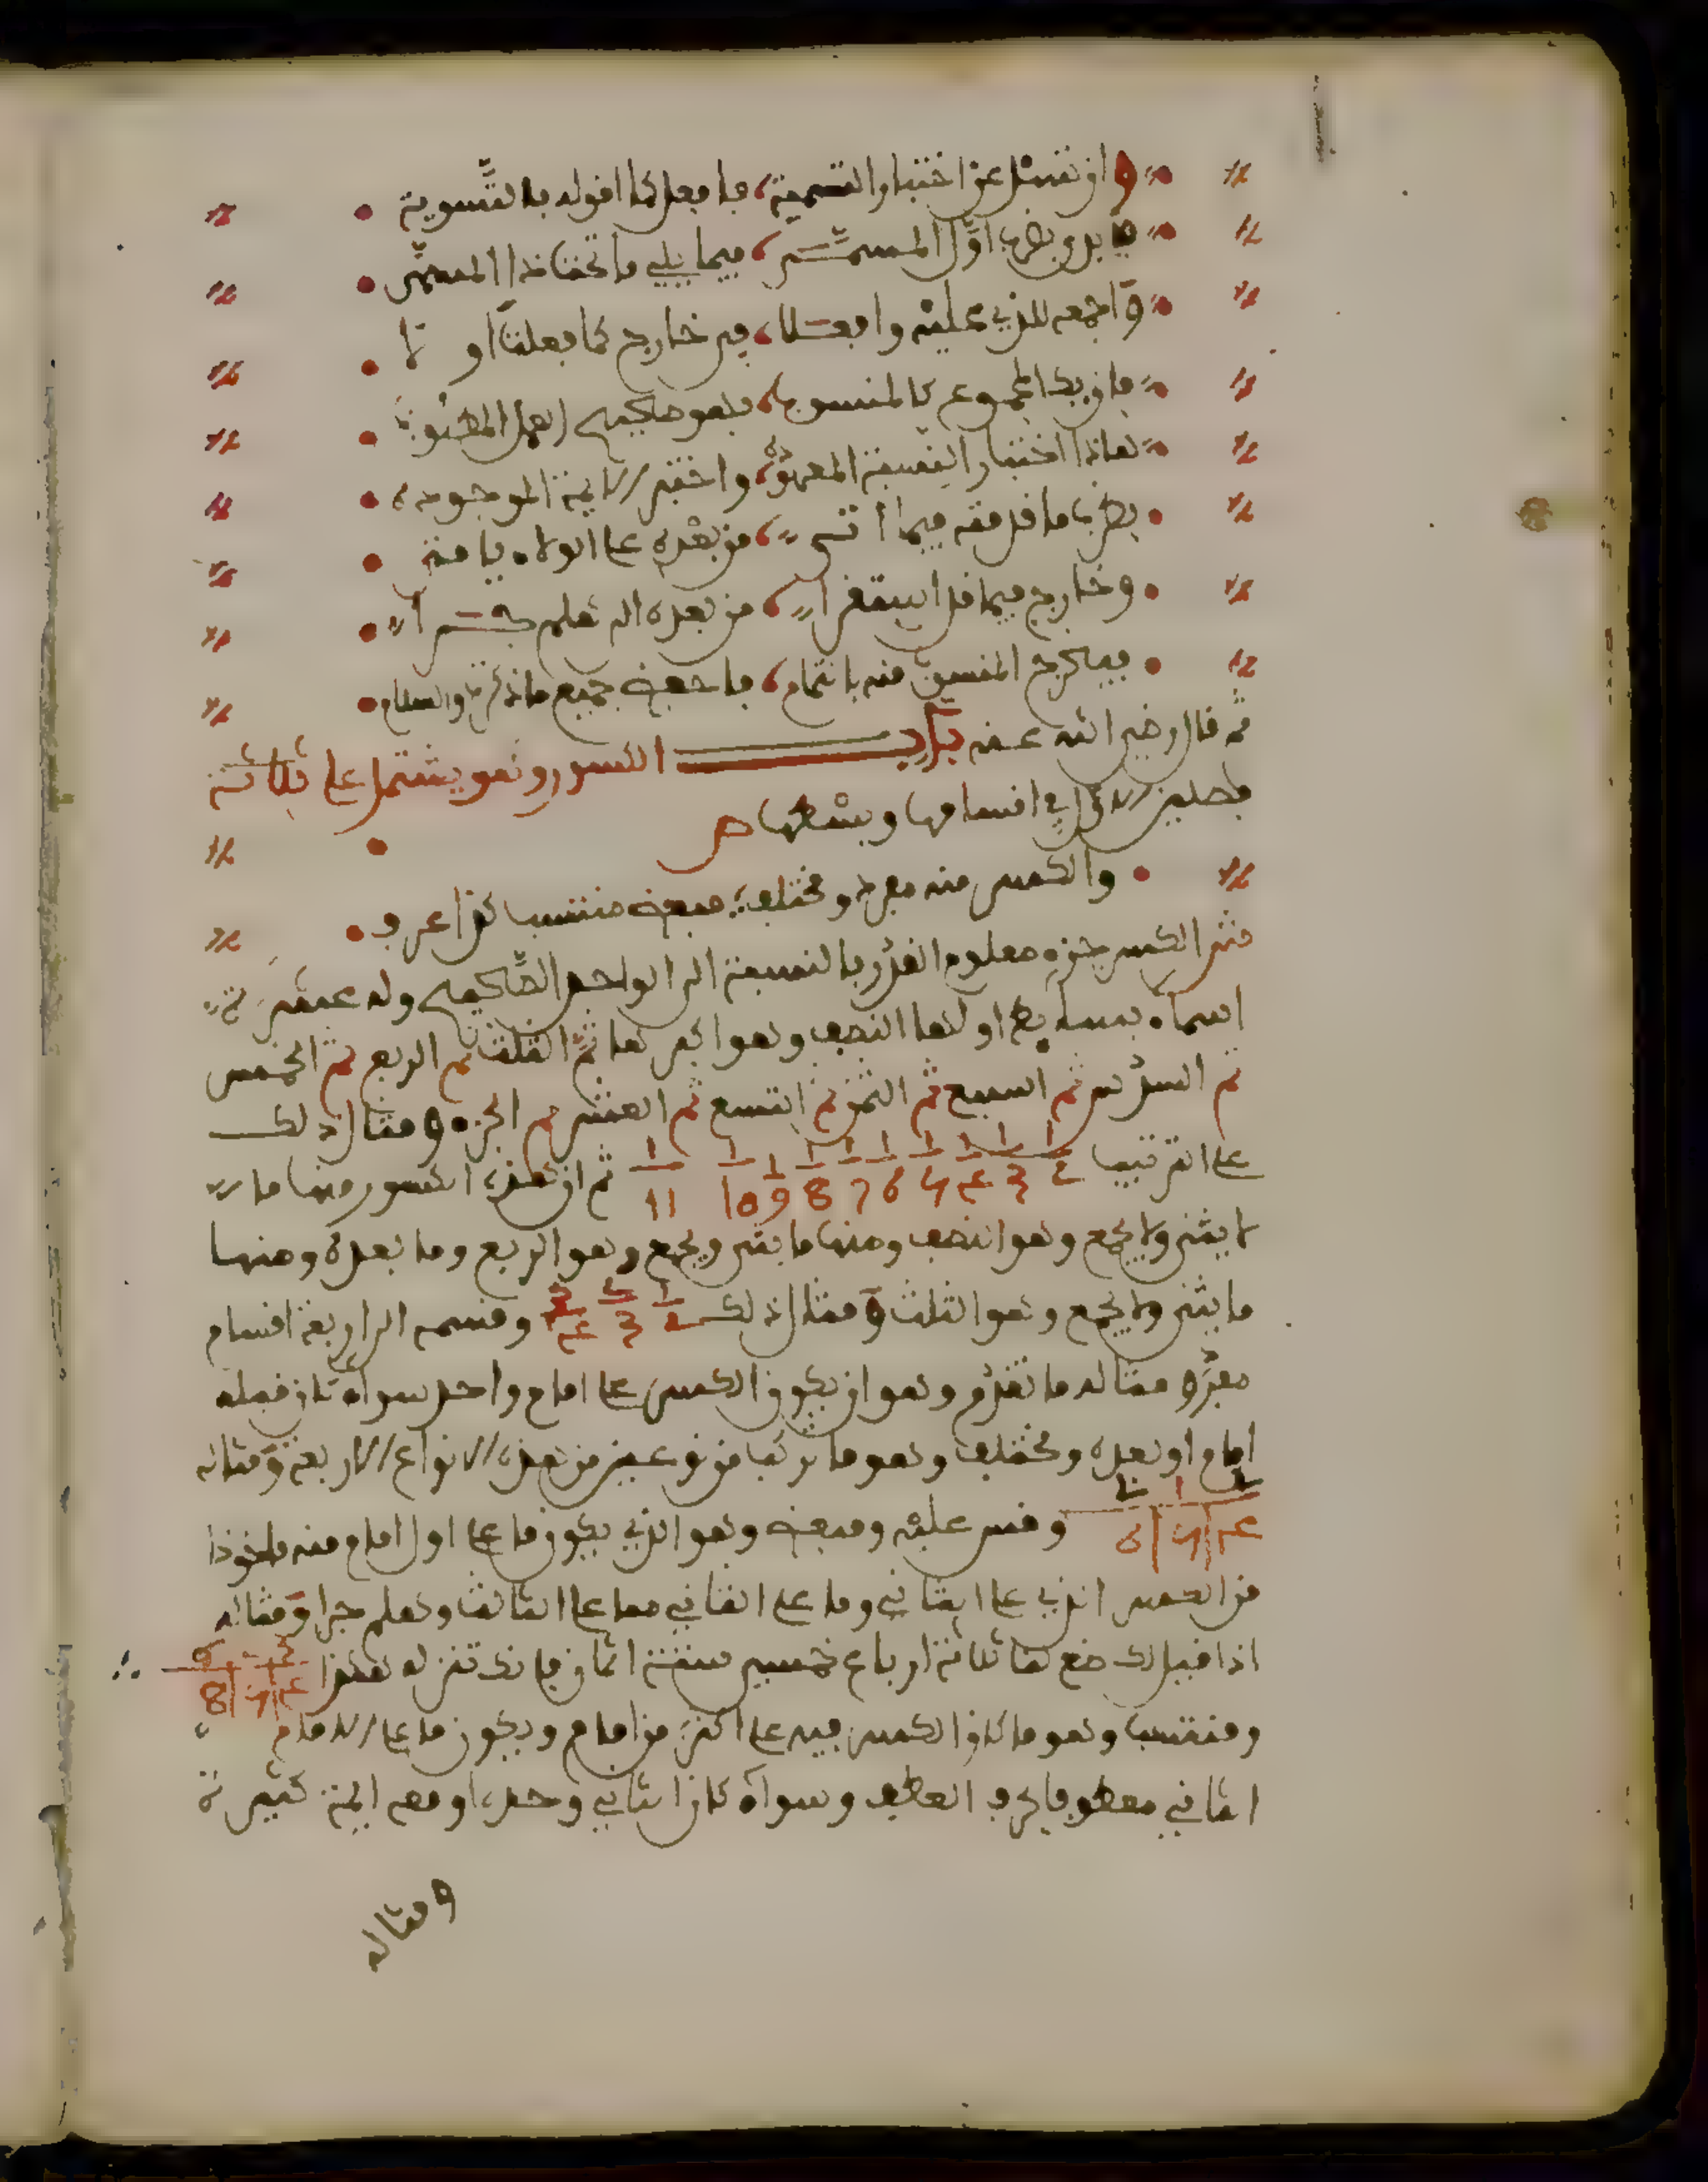 وان تسئل عن اختبار التسمية، فافعل كما اقوله بالتسوية
فابدء بضرب اول المسمى، فيما يلي ما تحت هذا المسمى
واجمعه للذي عليه وافعلا، في خارج كما فعلت اولا
فان يك المجموع كالمنسوب، فهو صحيح العمل المطلوب
هذا اختبار النسبة المعهودة، واختبر الائمة الموجودة
بضرب ما قدمته فيما اتى، من بعده على الولاء يا فتى
وخارج فيما قد استقرا، من بعده الى هلم جرا
فيخرج المنسوب منه بالتمام، فاحفظ جميع ما ذكرته والسلام
ثم قال رضي الله عنه باب الكسور وهو يشتمل على ثلاثة
فصلين الاول في اقسامها وبسطها ص
والكسر منه مفرد ومختلف، مبعض منتسب كذا عرف
ش الكسر جزء معلوم القدر بالنسبة الى الواحد الصحيح وله عشرة
اسماء بسائط اولها النصف وهو اكبرها ثم الثلث ثم الربع ثم الخمس
ثم السدس ثم السبع ثم الثمن ثم التسع ثم العشر ثم الجزء ومثال ذلك
على الترتيب 1/2 1/3 1/4 1/5 1/6 1/7 1/8 1/9 1/10 1/11 ثم ان هذه الكسور منها ما
لا يثنى ولا يجمع وهو النصف ومنها ما يثنى ويجمع وهو الربع وما بعده ومنها
ما يثنى ولا يجمع وهو الثلث ومثال ذلك 1/2 2/3 3/4 وقسمه الى اربعة اقسام
مفرد ومثاله ما تقدم وهو ان يكون الكسر على امام واحد سواء كان قبله
امام او بعده ومختلف وهو ما تركب من نوعين من هذه الانواع الاربعة ومثاله
وقس عليه ومبعض وهو الذي يكون ما على اول امام منه ماخوذا
من الكسر الذي على الثاني وما على الثاني مما على الثالث وهلم جرا ومثاله
اذا قيل لك ضع لنا ثلاثة ارباع خمسي ستة اثمان فانك تنزله هكذا
ومنتسب وهو ما كان الكسر فيه على اكثر من امام ويكون ما على الامام
الثاني معطوفا بحرف العطف وسواء كان الثاني وحده او معه ائمة كثيرة
ومثاله